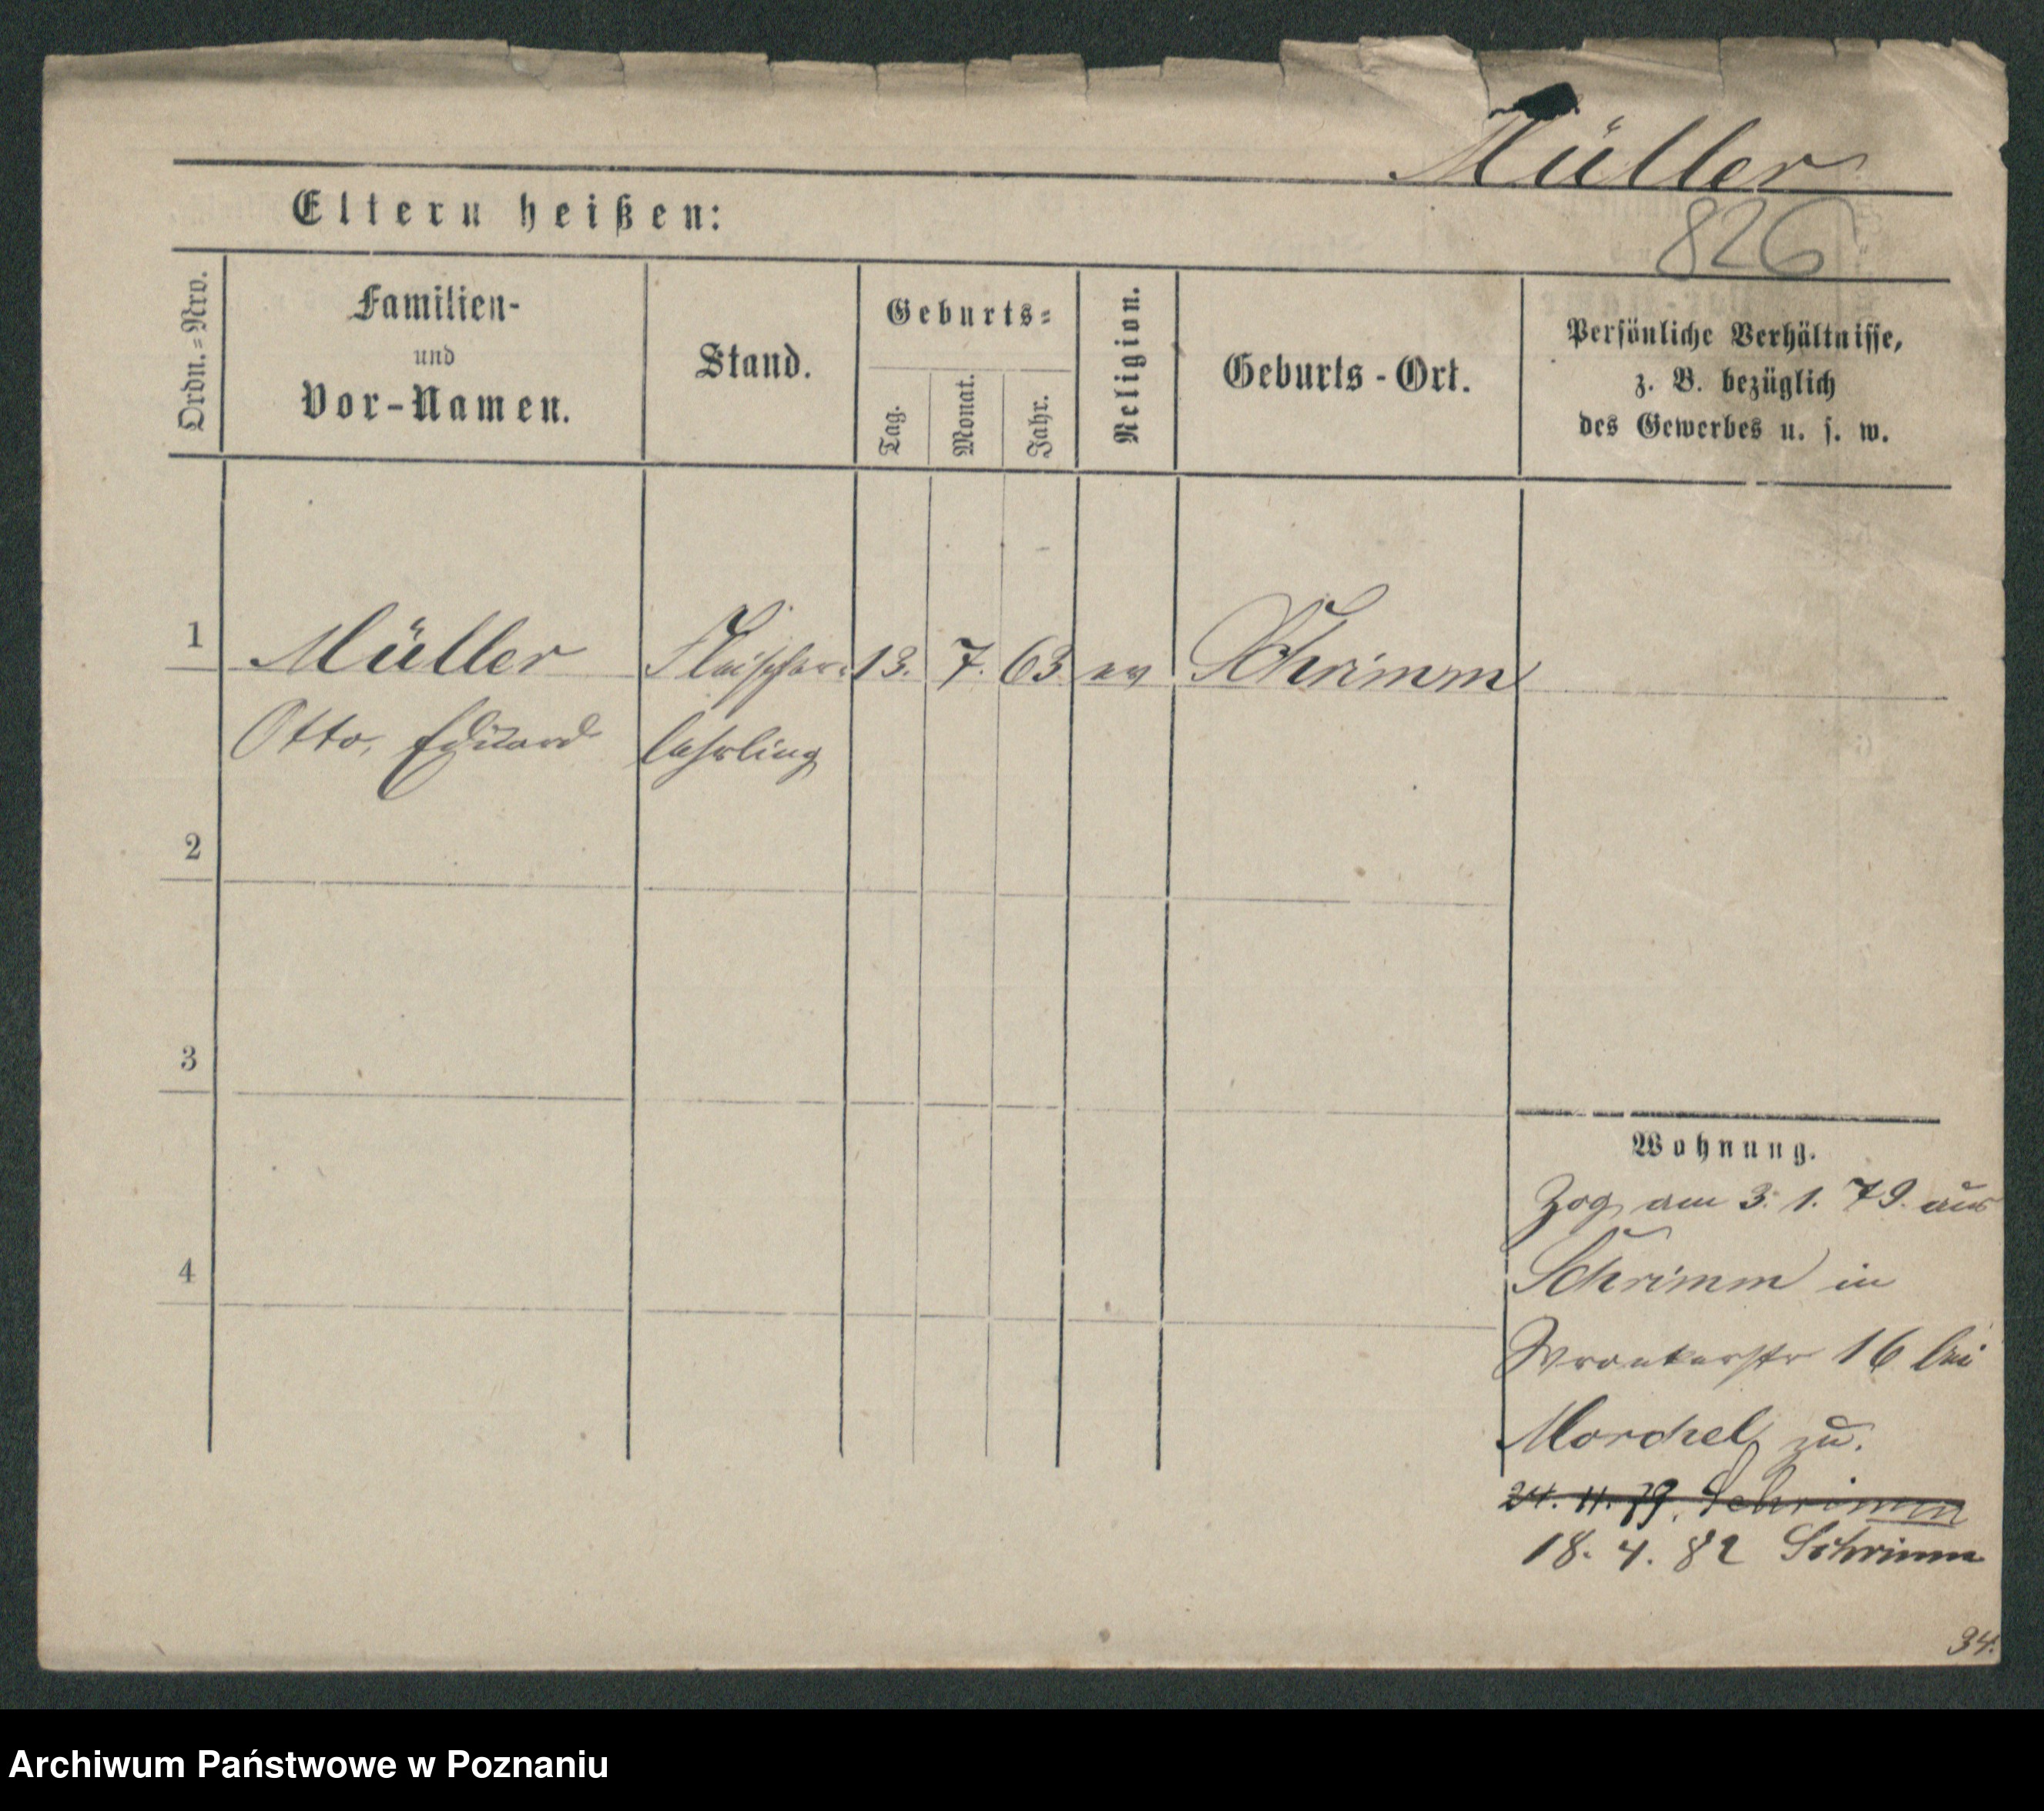 Müller
826
Eltern heißen:
Ordn.=Nro.
Familien-
und
Vor-Namen.
Stand.
Geburts=
Tag.
Monat.
Jahr.
Religion.
Geburts-Ort.
Persönliche Verhältnisse,
z. B. bezüglich
des Gewerbes u. s. w.
1 Müller Fleischer= 13. 7. 63 ev Schrimm
Otto, Eduard lehrling
2
3
4
Wohnung.
Zog am 3. 1. 79. aus
Schrimm in
Wronkerstr 16 bei
Morchel zu.
24. 11. 79. Schrimm
18. 4. 82 Schrimm
34.
Archiwum Państwowe w Poznaniu